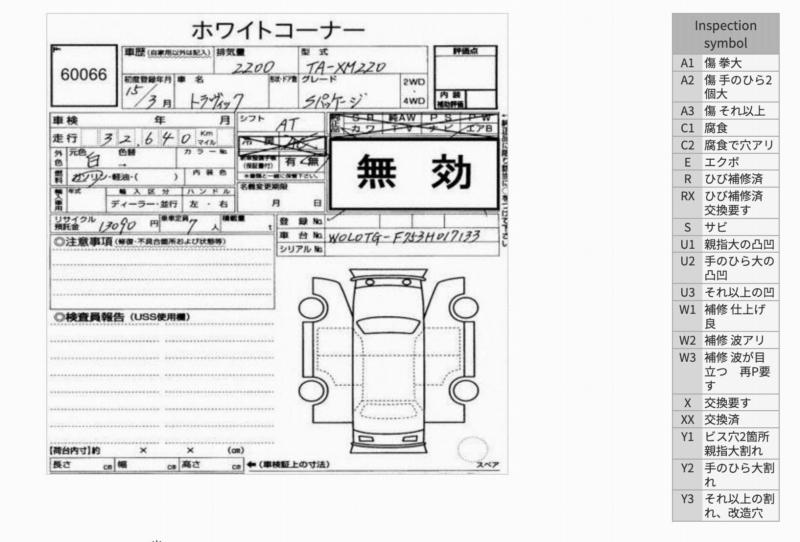 ホワイトコーナー
60066
車歴 (自家用以外は記入)
排気量
型式
評価点
2200
TA-XM220
初度登録年月
車名
形状・ドア数
グレード
2WD
・
4WD
15/3月
トラヴィック
Sパッケージ
内装
補助評価
車検 年 月
シフト
AT
走行 32,640 Km マイル
外色
元色
色替
カラーNo.
白 →
有・無
燃料
ガソリン・軽油・( )
内装色
輸入車用
年式
輸入区分
ハンドル
ディーラー・並行
左・右
名義変更期限
月 日
無効
リサイクル預託金 13090 円
乗車定員 7 人
積載量 t
登録No.
車台No. W0L0TG-F753H017133
シリアルNo.
◎注意事項 (修復・不具合箇所および状態等)
◎検査員報告 (USS使用欄)
【荷台内寸】約 × × (cm)
長さ cm 幅 cm 高さ cm ←(車検証上の寸法)
スペア
Inspection
symbol
A1 傷 拳大
A2 傷 手のひら2
個大
A3 傷 それ以上
C1 腐食
C2 腐食で穴アリ
E エクボ
R ひび補修済
RX ひび補修済
交換要す
S サビ
U1 親指大の凸凹
U2 手のひら大の
凸凹
U3 それ以上の凹
W1 補修 仕上げ
良
W2 補修 波アリ
W3 補修 波が目
立つ 再P要
す
X 交換要す
XX 交換済
Y1 ビス穴2箇所
親指大割れ
Y2 手のひら大割
れ
Y3 それ以上の割
れ、改造穴